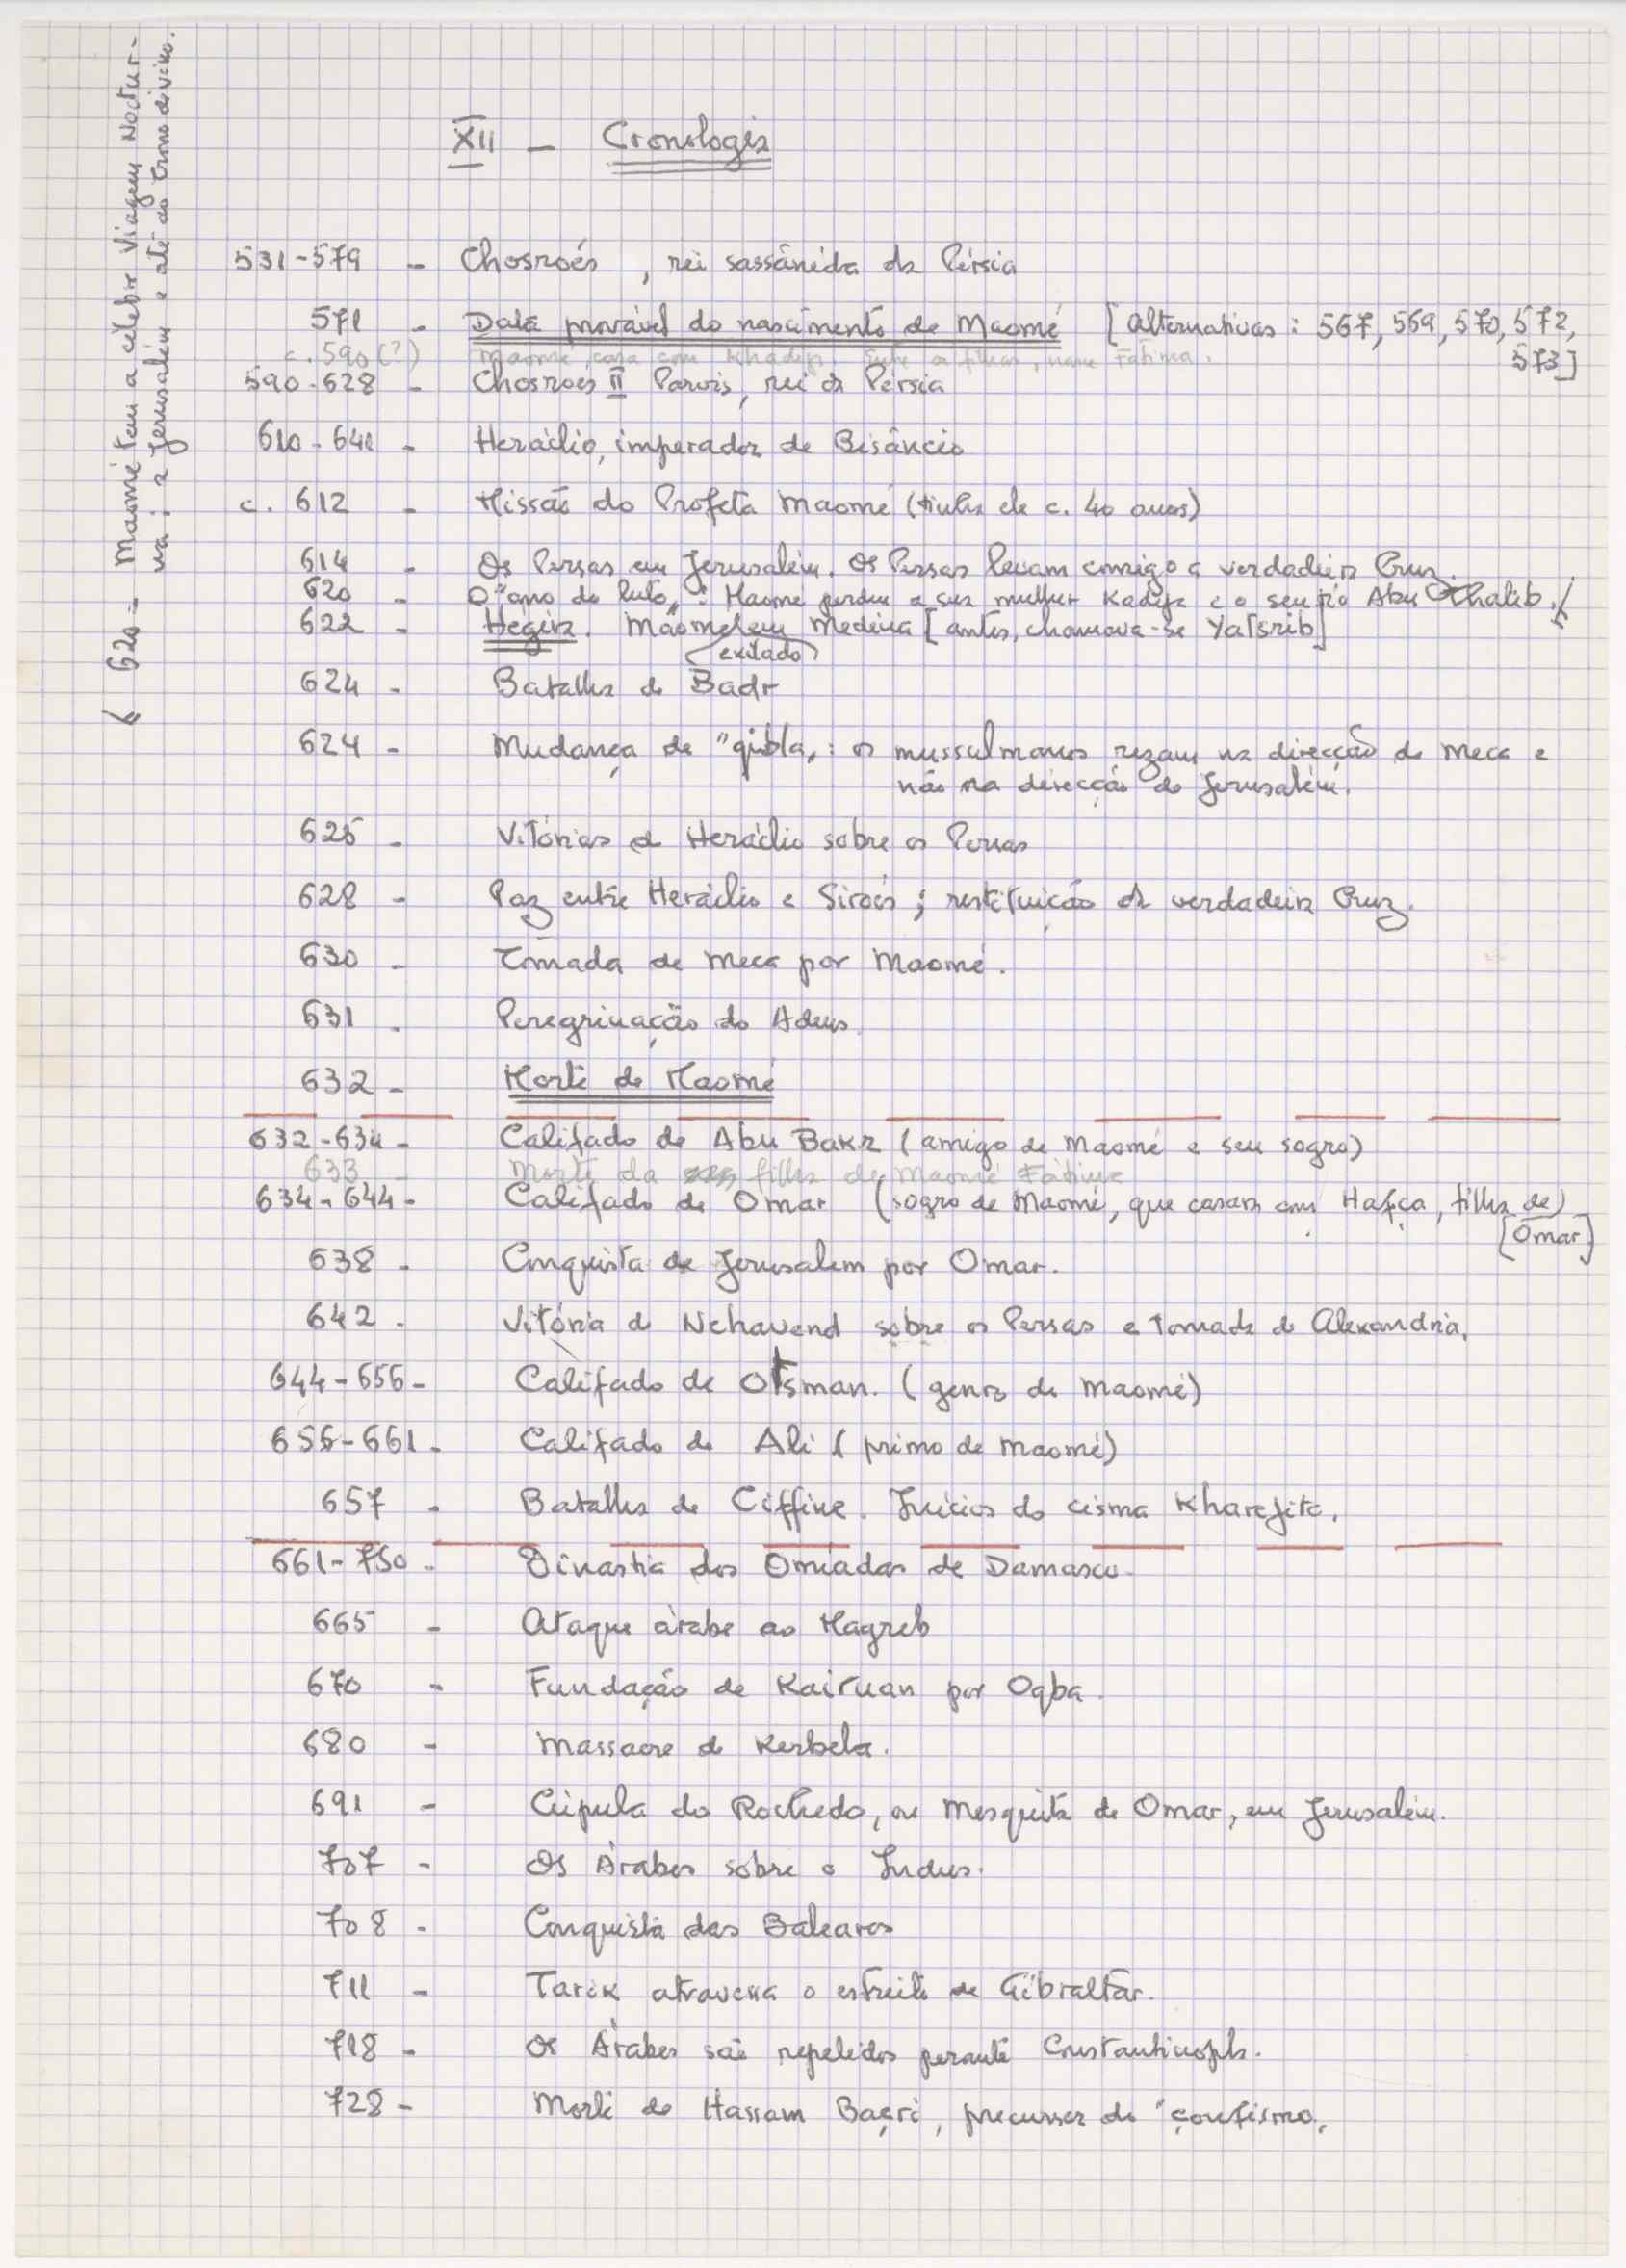 XII - Cronologia
531-579 - Chosroés , rei sassânida da Pérsia
571 - Data provável do nascimento de Maomé [Alternativas: 567, 569, 570, 572,
573]
c. 590(?) Maomé casa com Khadija. Entre os filhos, nasce Fátima.
590-628 - Chosroes II Parvis, rei da Pérsia
610-641 - Heráclio, imperador de Bisâncio
c. 612 - Missão do Profeta Maomé (tinha ele c. 40 anos)
614 - Os Persas em Jerusalém. Os Persas levam comigo a verdadeira Cruz.
620 - O "ano do luto": Maomé perdeu a sua mulher Kadija e o seu tio Abu Thalib.
622 - Hegira. Maomé em Medina [antes, chamava-se Yatsrib]
exilado
624 - Batalha de Badr
624 - Mudança de "qibla": os mussulmanos rezam na direcção de Meca e
não na direcção de Jerusalém.
625 - Vitórias de Heráclio sobre os Persas
628 - Paz entre Heráclio e Siroés; restituição da verdadeira Cruz.
630 - Tomada de Meca por Maomé.
631 - Peregrinação do Adeus.
632 - Morte de Maomé
632-634 - Califado de Abu Bakr (amigo de Maomé e seu sogro)
633 - Morte da filha de Maomé Fátima
634-644 - Califado de Omar (sogro de Maomé, que casara com Hafça, filha de)
[Omar]
638 - Conquista de Jerusalem por Omar.
642 - Vitória de Nehavend sobre os Persas e tomada de Alexandria.
644-656 - Califado de Otsman. (genro de Maomé)
656-661 - Califado de Ali (primo de Maomé)
657 - Batalha de Ciffine. Inícios do cisma Kharejita.
661-750 - Dinastia dos Omíadas de Damasco.
665 - Ataque árabe ao Magreb
670 - Fundação de Kairuan por Oqba.
680 - Massacre de Kerbela.
691 - Cúpula do Rochedo, ou Mesquita de Omar, em Jerusalém.
707 - Os Árabes sobre o Indus.
708 - Conquista das Baleares
711 - Tarik atravessa o estreito de Gibraltar.
718 - Os Árabes são repelidos perante Constantinopla.
728 - Morte de Hassam Baçri, precursor do "çoufismo".
620 - Maomé tem a célebre Viagem Noctur-
na: a Jerusalém e até ao trono divino.